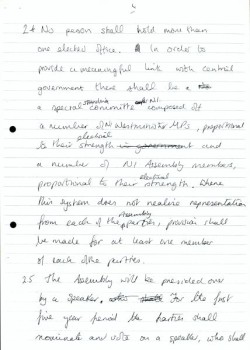 4
24 No person shall hold more than
one elected office. In order to
provide a meaningful link with central
government there shall be a
a special standing committee composed of
a number of NI Westminster MPs, proportional
to their electoral strength in government and
a number of NI Assembly members,
proportional to their electoral strength. Where
this system does not realise representation
from each of the Assembly parties, provision shall
be made for at least one member
of each of the parties.
25 The Assembly will be presided over
by a speaker. For the first
five year period the parties shall
nominate and vote on a speaker, who shall